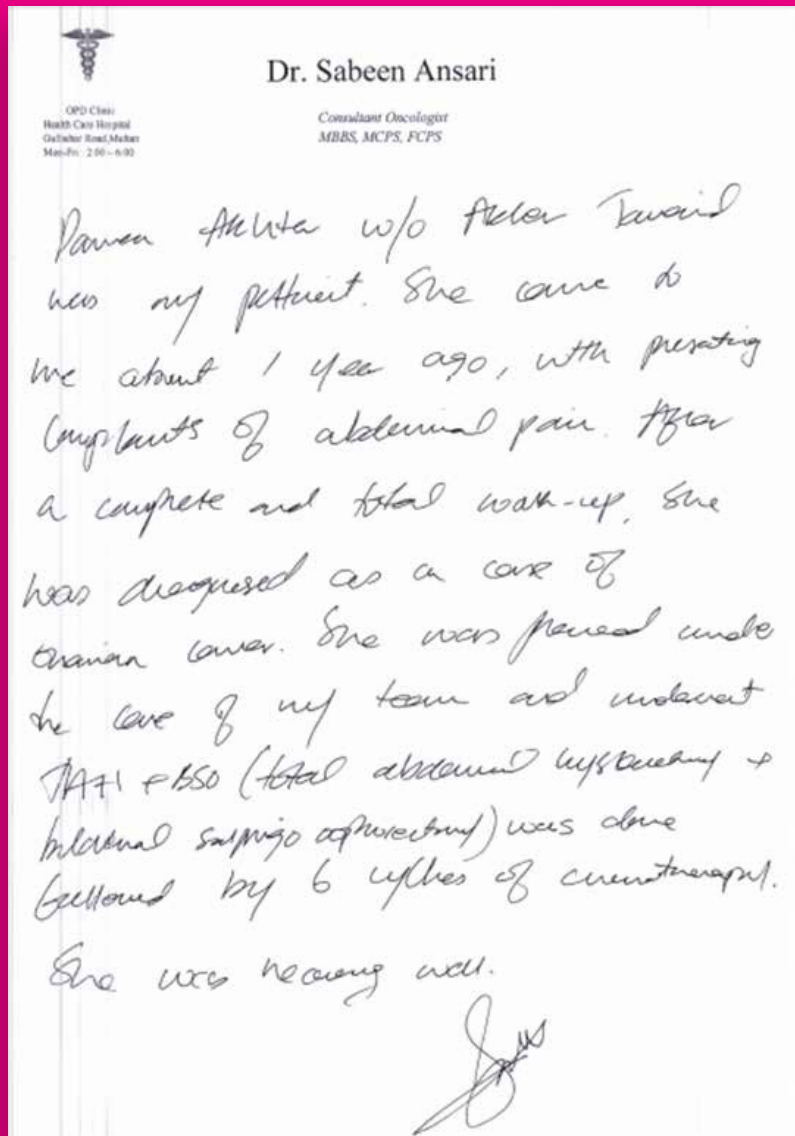 Dr. Sabeen Ansari
OPD Clinic
Health Care Hospital
Road, Multan
Mon-Fri: 2:00 – 6:00
Consultant Oncologist
MBBS, MCPS, FCPS
Akhter w/o Javaid
was my patient. She came to
me about 1 year ago, with presenting
complaints of abdominal pain. After
a complete and total work-up, she
was diagnosed as a case of
ovarian cancer. She was placed under
the care of my team and underwent
TAH + BSO (total abdominal hysterectomy +
bilateral salpingo oophorectomy) was done
followed by 6 cycles of chemotherapy.
She was healing well.